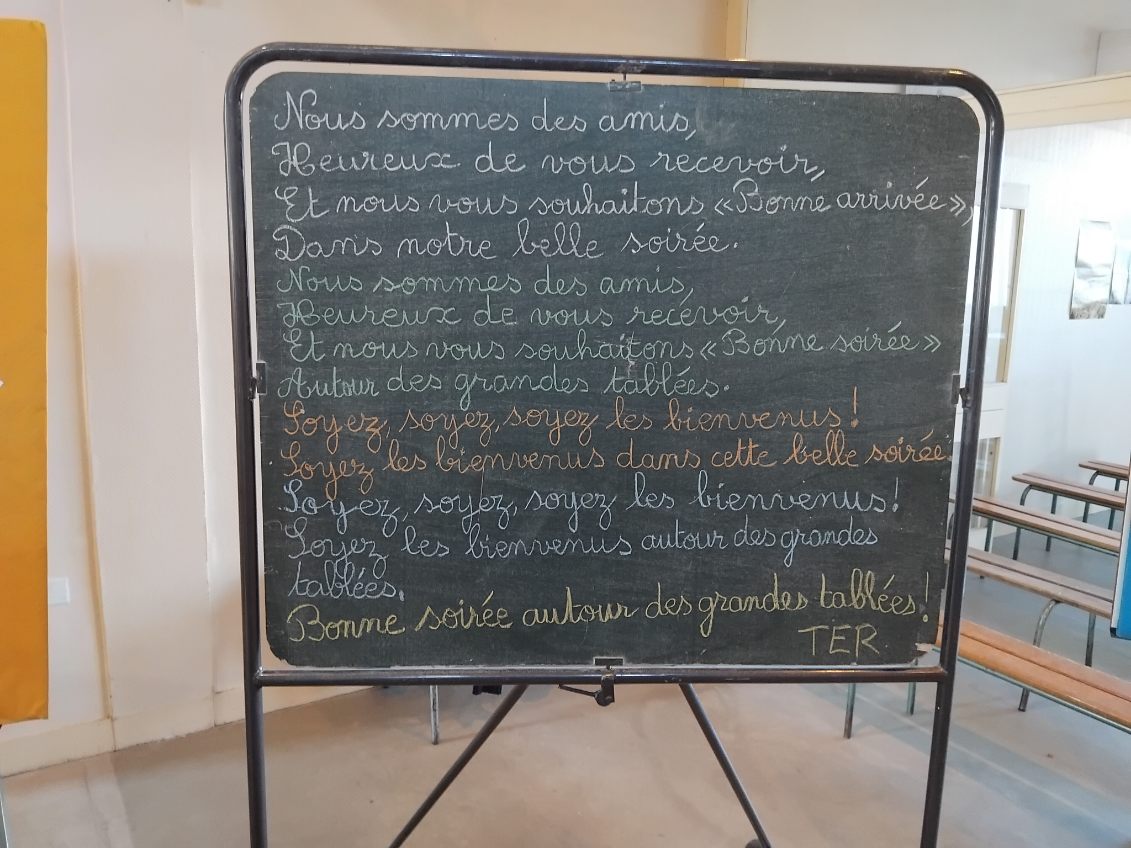 Nous sommes des amis,
Heureux de vous recevoir,
Et nous vous souhaitons «Bonne arrivée»,
Dans notre belle soirée.
Nous sommes des amis,
Heureux de vous recévoir,
Et nous vous souhaitons «Bonne soirée»
Autour des grandes tablées.
Soyez, soyez, soyez les bienvenus!
Soyez les bienvenus dans cette belle soirée.
Soyez, soyez, soyez les bienvenus!
Soyez les bienvenus autour des grandes
tablées.
Bonne soirée autour des grandes tablées!
TER